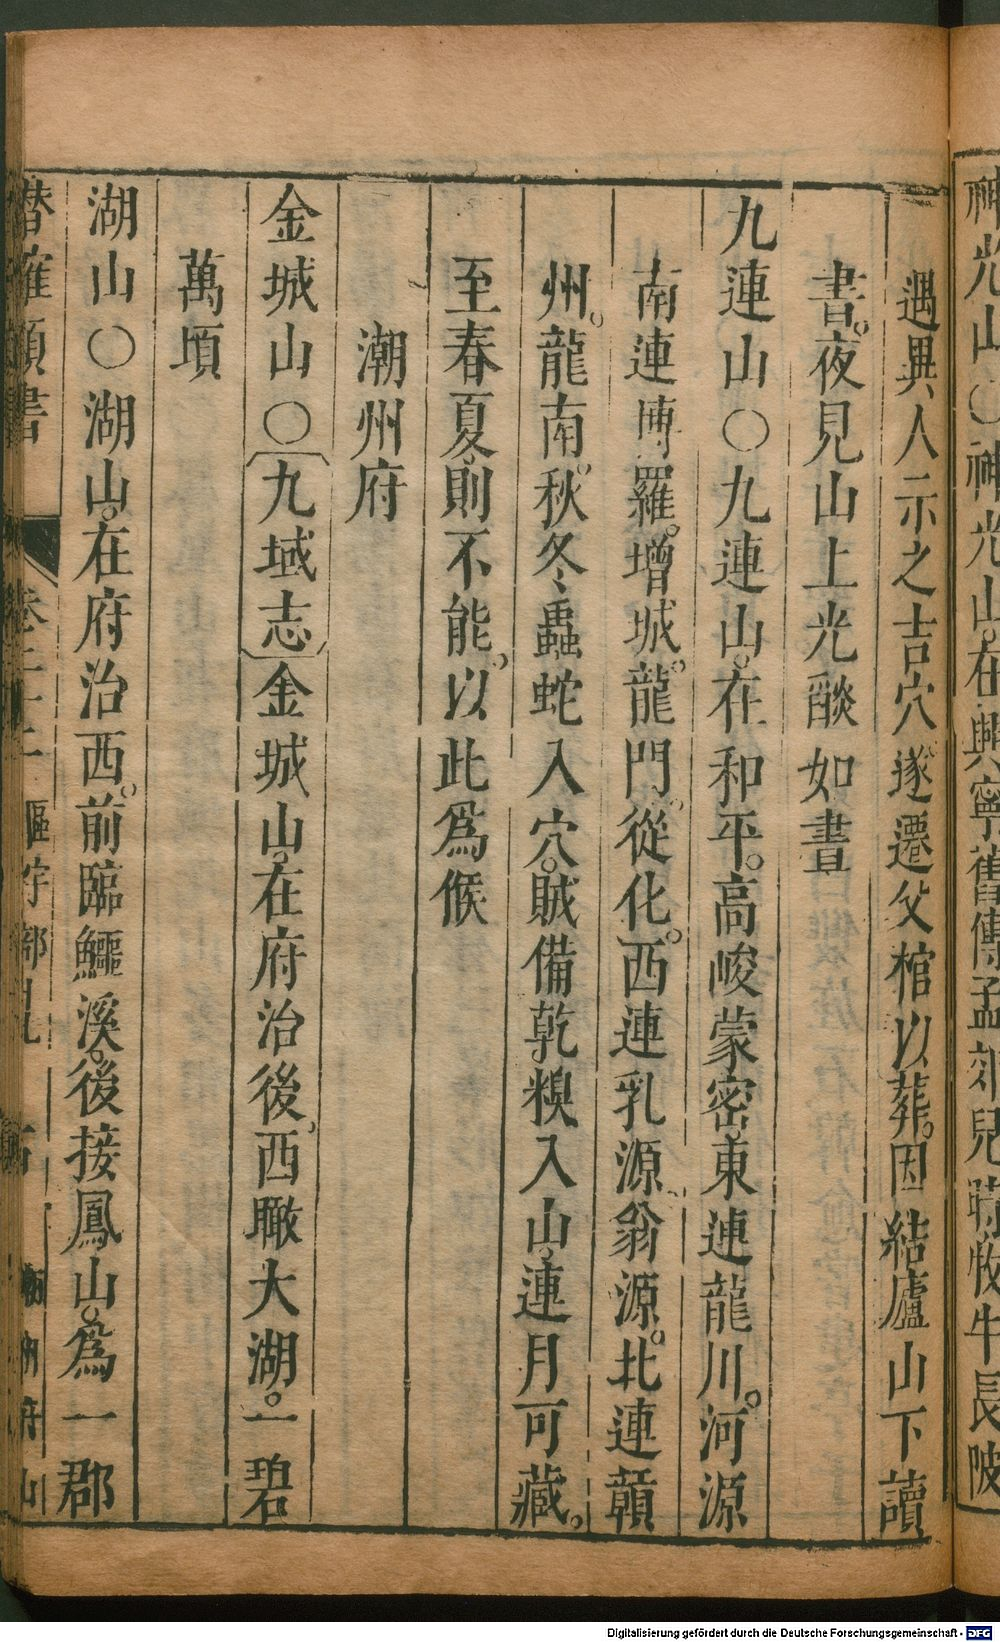 神光山○神光山在興寧舊傳孟郊兒時牧牛長陂
遇異人示之吉穴遂遷父棺以葬因結廬山下讀
書夜見山上光燄如晝
九連山○九連山在和平高峻蒙密東連龍川河源
南連博羅增城龍門從化西連乳源翁源北連贑
州龍南秋冬蟲蛇入穴賊備乾糗入山連月可藏
至春夏則不能以此爲候
潮州府
金城山○九域志金城山在府治後西瞰大湖一碧
萬頃
湖山○湖山在府治西前臨鱷溪後接鳳山爲一郡
潛確類書 卷二十二 區宇部 潮州府 山
Digitalisierung gefördert durch die Deutsche Forschungsgemeinschaft - DFG